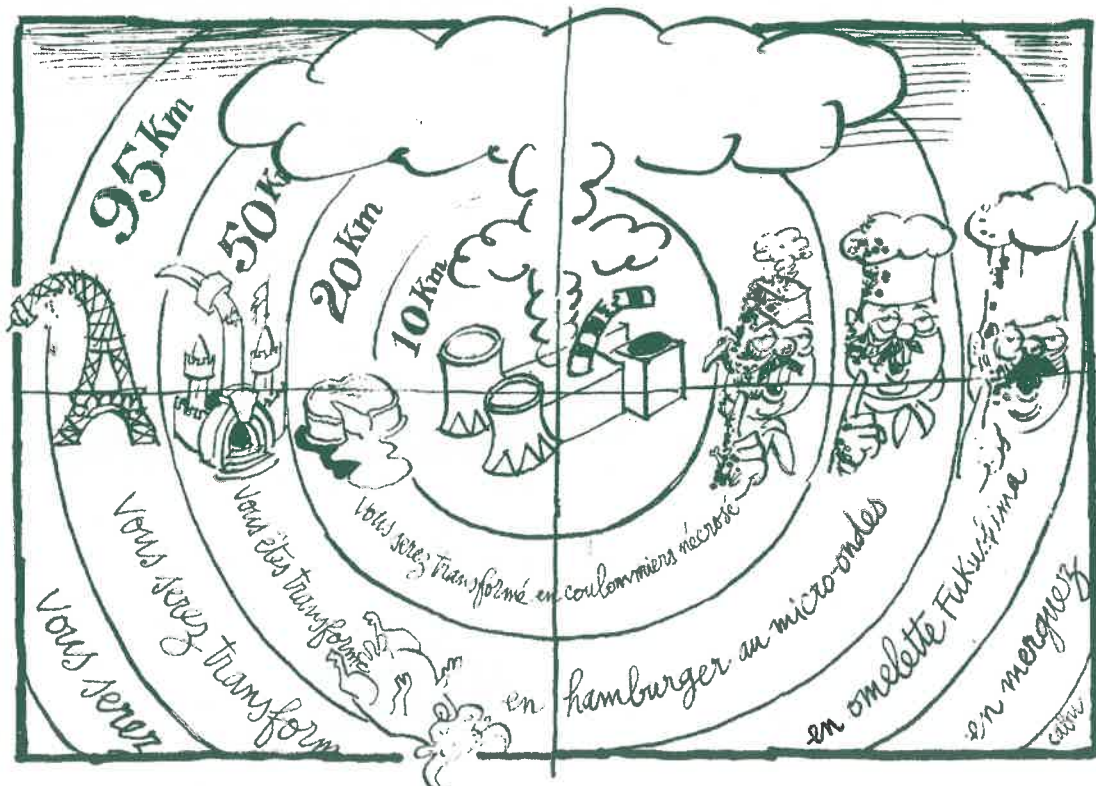 95 Km
50 Km
20 Km
10 Km
vous serez transformé en coulommiers nécrosé
vous êtes transformé en hamburger au micro-ondes
vous serez transform en omelette Fukushima
vous serez en merguez
cabu